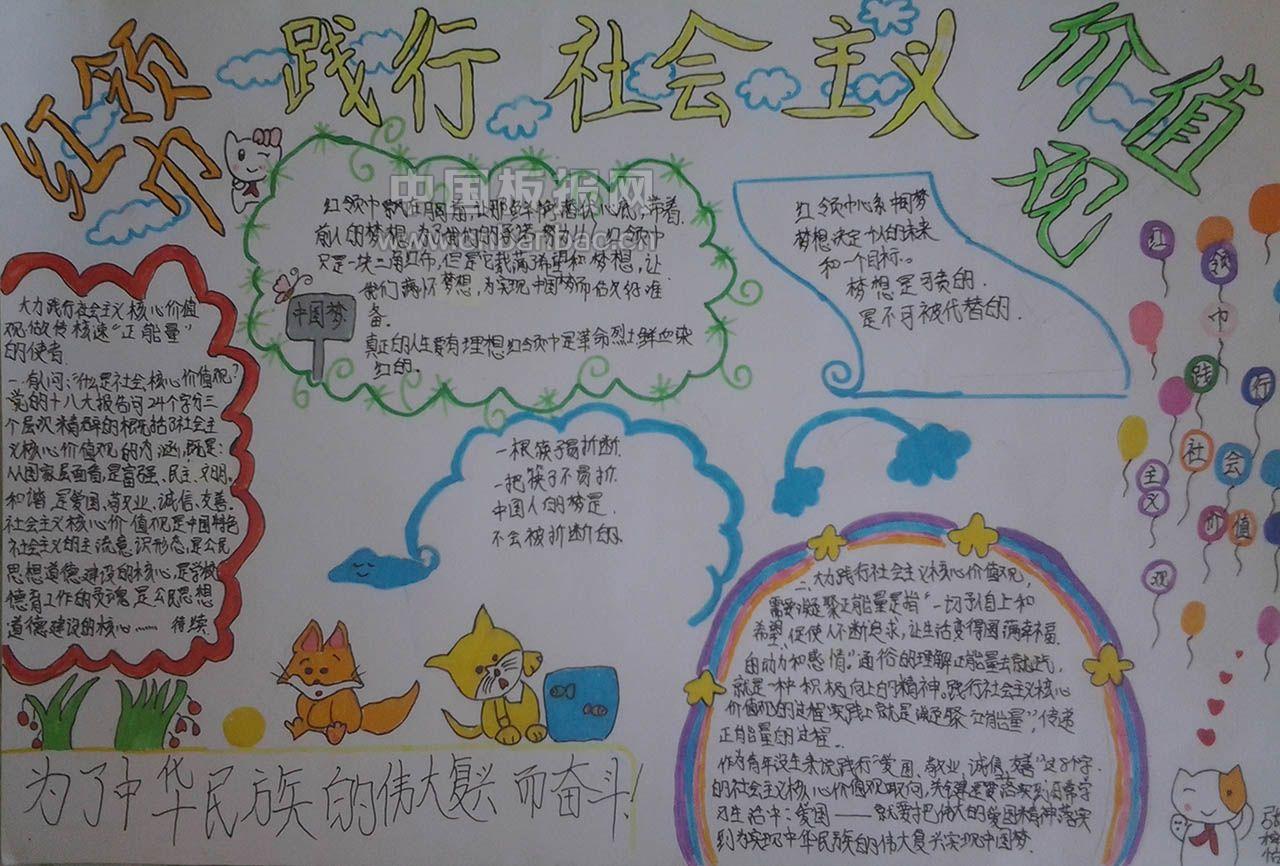 红领
巾
践行 社会主义
价值
观
中国板报网
www.cnbanbao.cn
红领巾飘在胸前,让那鲜艳落伏心底,带着
前人的梦想,为了我们的承诺,努力!从红领巾
只是一块三角红布,但是它载满了希望和梦想,让
我们满怀梦想,为实现中国梦而佰久行准
备.
真正的人生要有理想红领巾是革命烈士鲜血染
红的.
中国梦
红领巾心系中国梦
梦想决定十人的未来
和一个目标.
梦想是可贵的.
是不可被代替的.
大力践行社会主义核心价值
观做传核速“正能量”
的使者
一.有人问:“什么是社会核心价值观?
党的十八大报告司24个字分三
个层次精辟的概括了社会主
义核心价值观的内涵,既是:
从国家层面看,是富强、民主、文明.
和谐,是爱国、敬业、诚信、友善.
社会主义核心价值观是中国特色
社会主义的主流意识形态,是公民
思想道德建设的核心,是学校
德育工作的灵魂是公民思想
道德建设的核心…… 待续
一根筷子易折断.
一把筷子不易折.
中国人的梦是.
不会被折断的.
红
领
巾
践
行
社
会
主
义
价
值
观
二.大力践行社会主义核心价值观,
需要凝聚正能量是指“一切予自上和
希望,促使人不断追求,让生活变得圆满幸福.
由动力和感情.”通俗的理解正能量去就践,
就是一种积极向上的精神.践行社会主义核心
价值观的过程实践上就是凝聚“正能量”,传递
正能量的过程.
作为青年没生来说践行“爱国、敬业、诚信、友善”这8个字.
的社会主义核心价值观取向,关键是要落实到日常学
习生活中:爱国——就要把伟大的爱国精神落实
到为实现中华民族的伟大复兴实现中国梦.
为了中华民族的伟大复兴而奋斗!